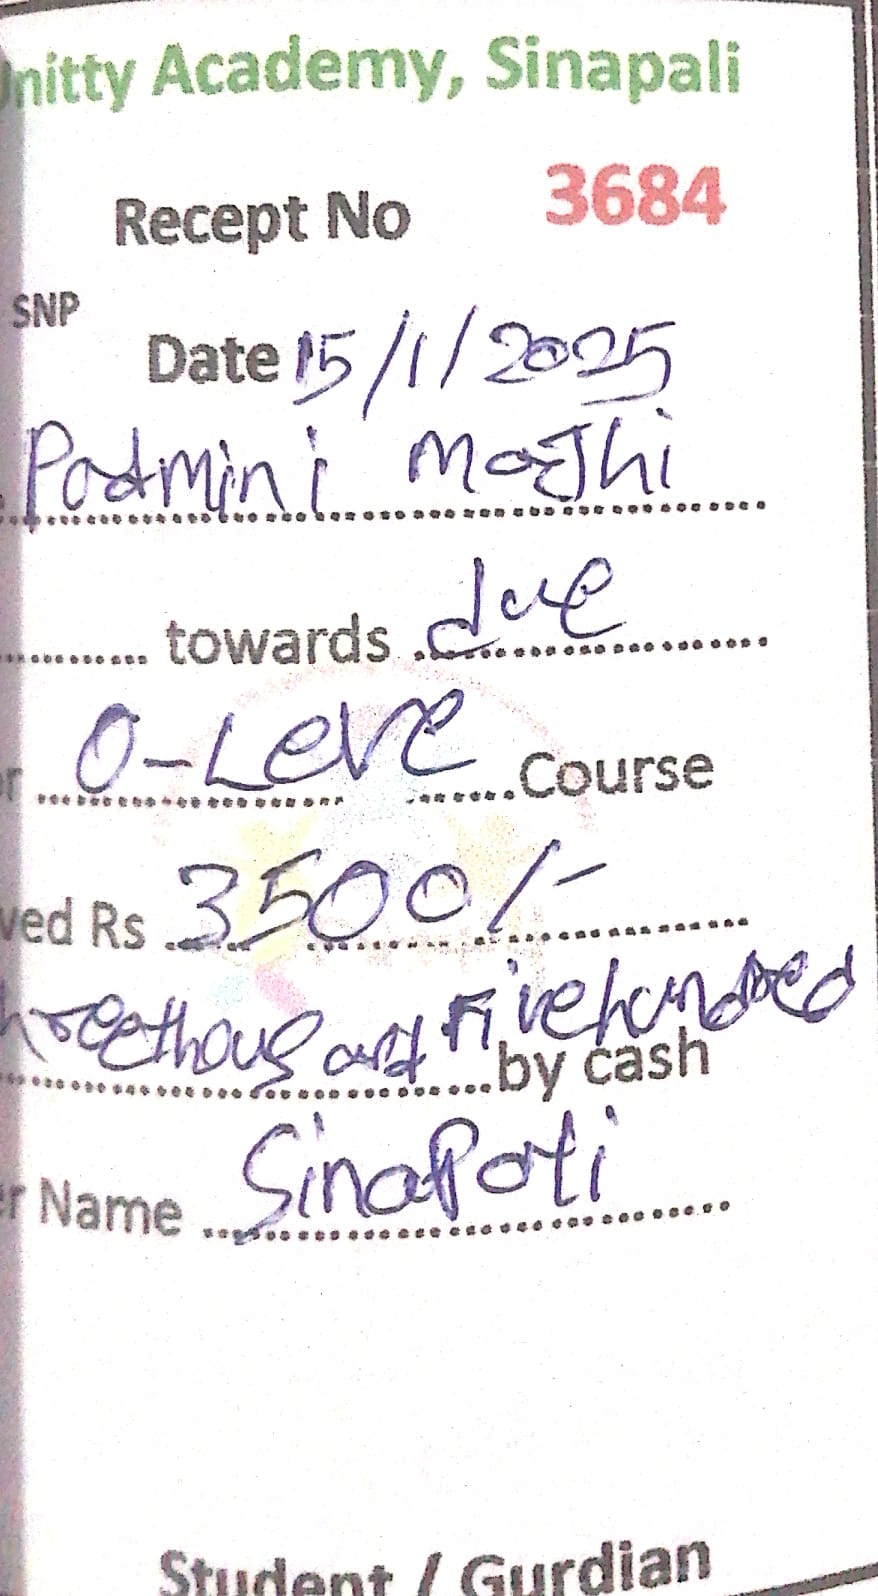 nitty Academy, Sinapali
Recept No 3684
SNP
Date 15/1/2025
Padmini Majhi
............ towards due
r O-Leve Course
ved Rs 3500/-
hreethousand Fivehundred
by cash
r Name Sinapali
Student / Gurdian